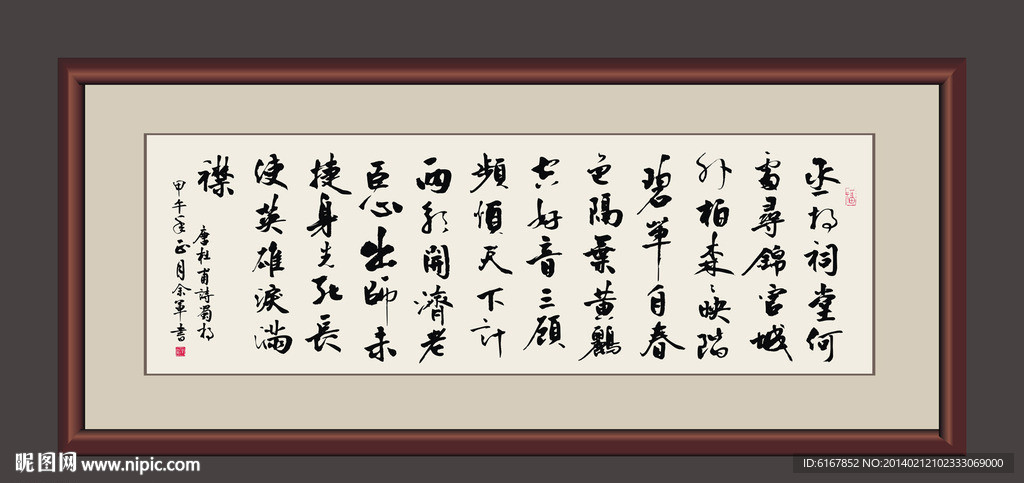 丞相祠堂何
處尋錦官城
外柏森〻映階
碧草自春
色隔葉黃鸝
空好音三顧
頻煩天下計
兩朝開濟老
臣心出師未
捷身先死長
使英雄淚滿
襟
唐杜甫詩蜀相
甲午年正月余軍書
昵图网 www.nipic.com
ID:6167852 NO:20140212102333069000